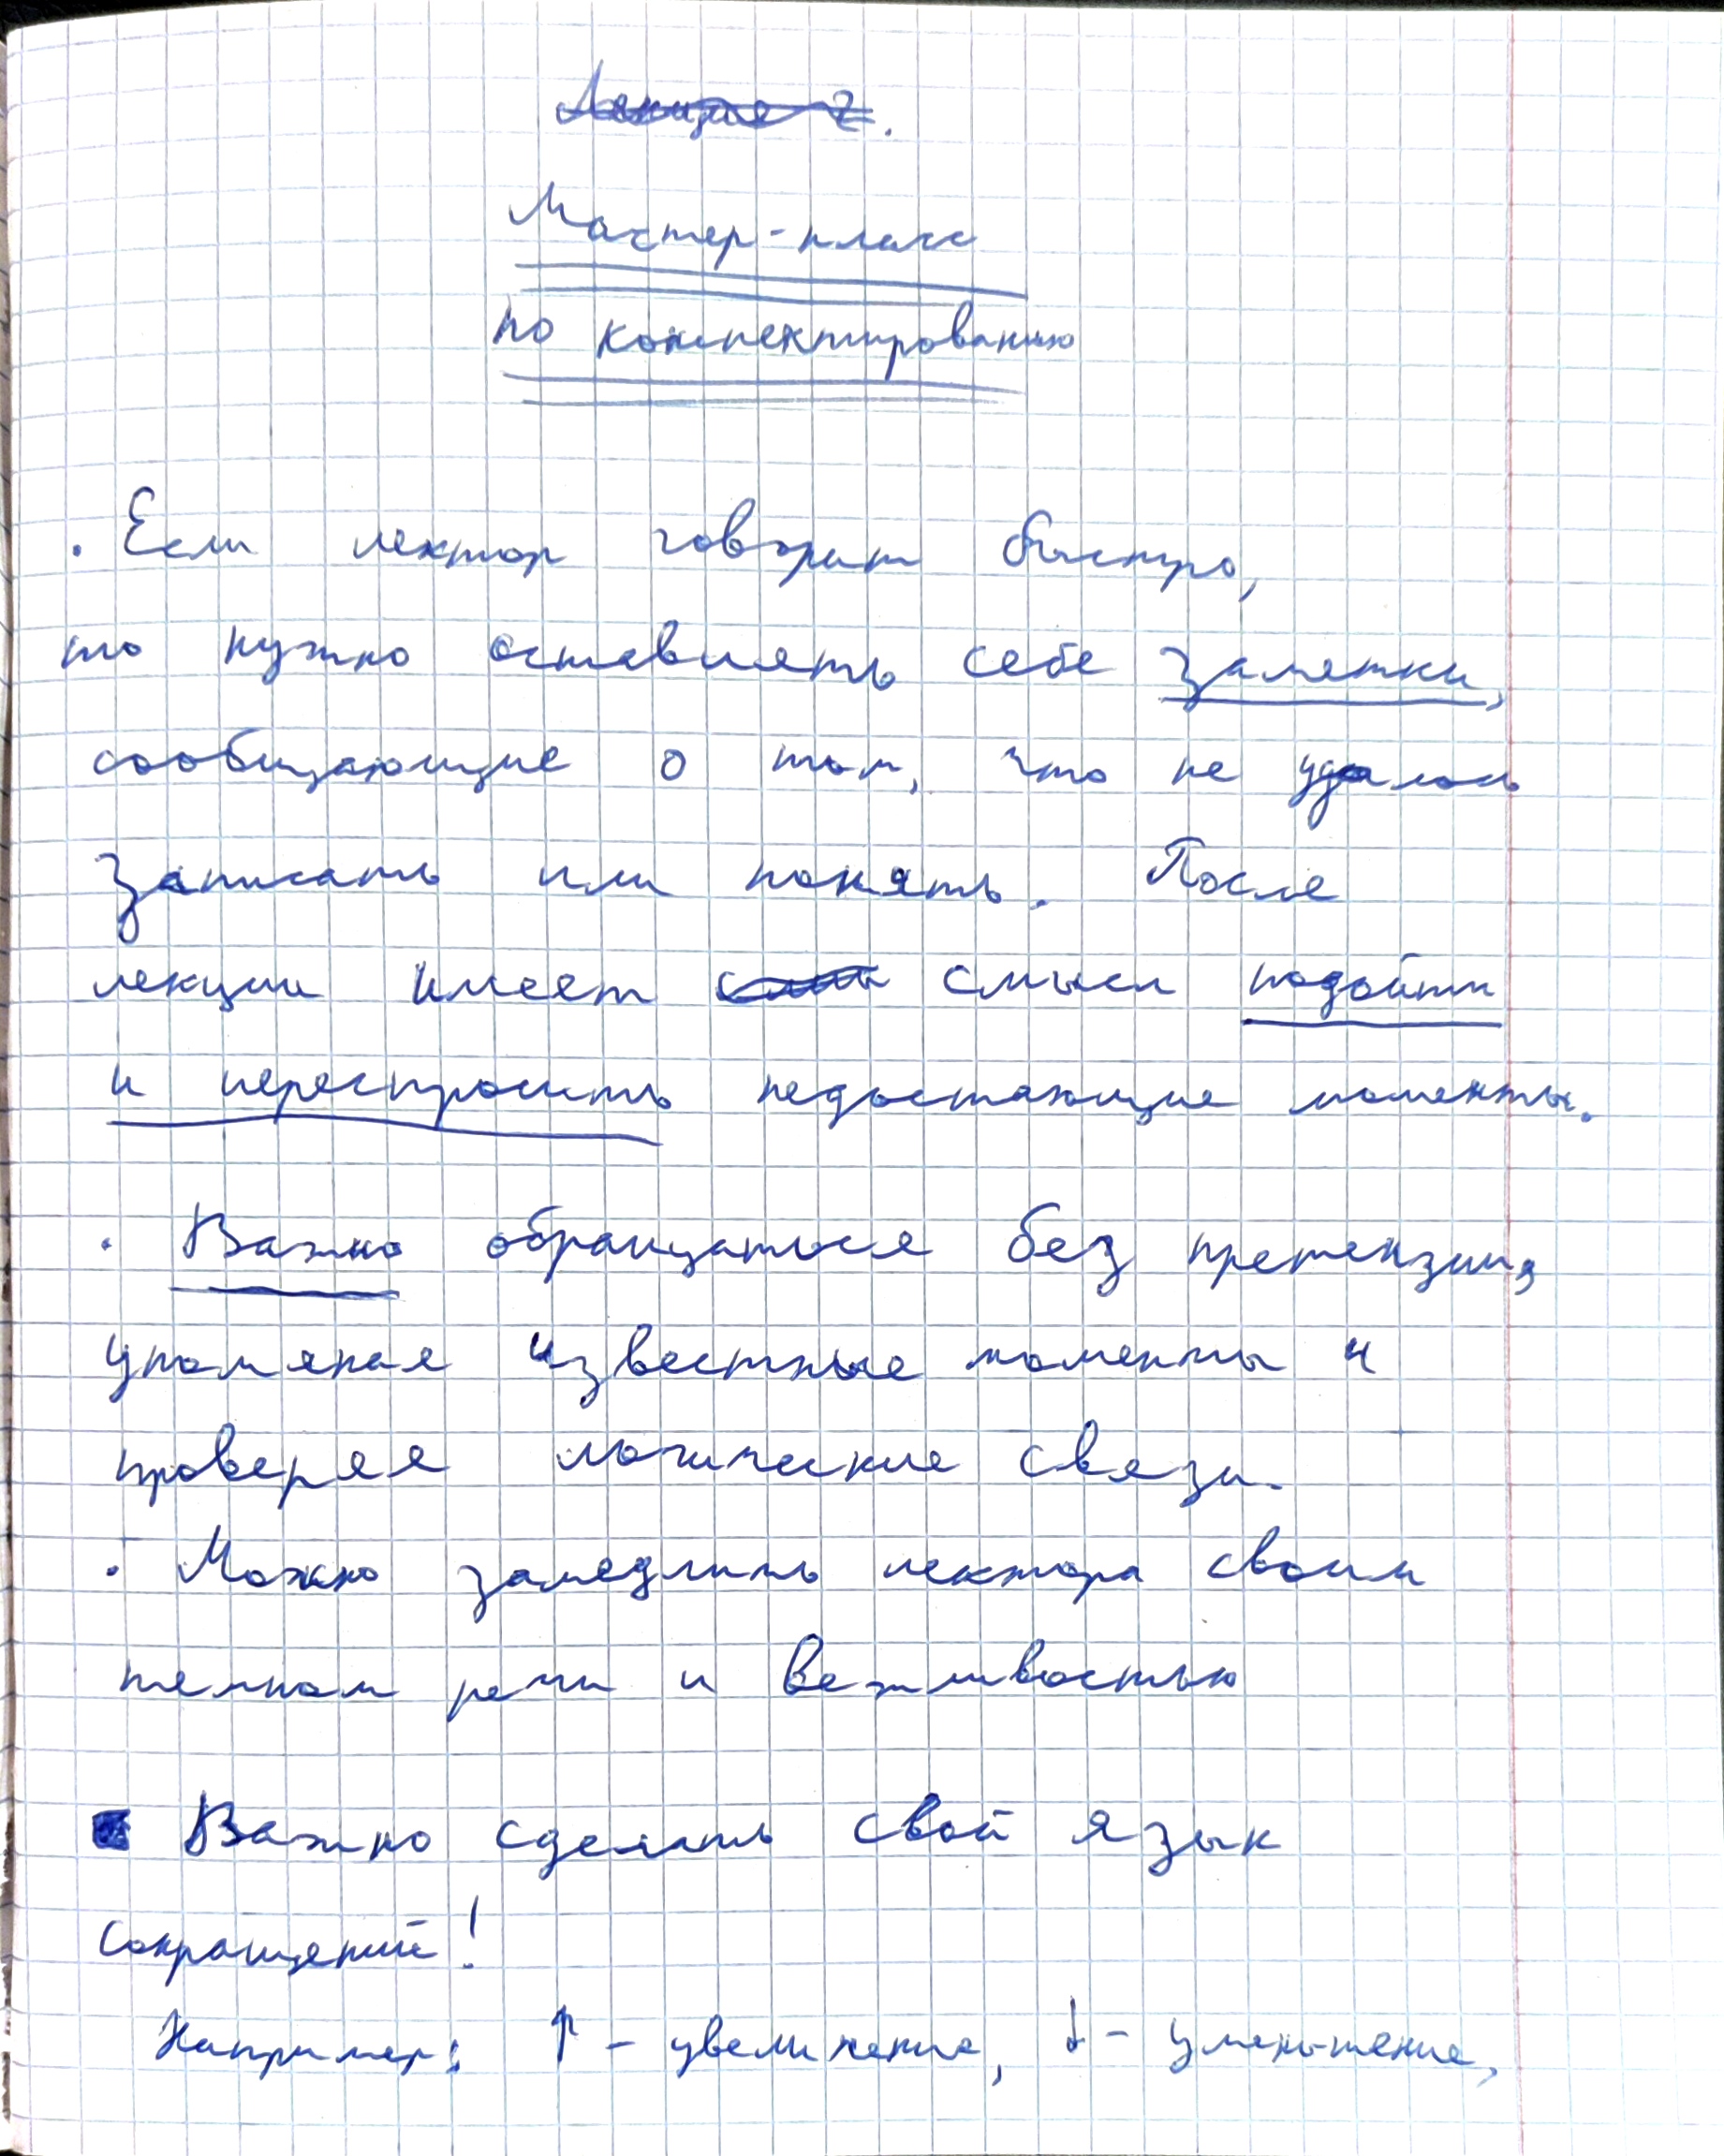 Лекция 2.
Мастер-класс
по конспектированию
· Если лектор говорит быстро,
то нужно оставлять себе заметки,
сообщающие о том, что не удалось
записать или понять. После
лекции имеет смысл подойти
и переспросить недостающие моменты.
· Важно обращаться без претензии,
упоминая известные моменты и
проверяя логические связи.
· Можно замедлить лектора своим
темпом речи и вежливостью
Важно сделать свой язык
сокращений!
Например: ↑ - увеличение, ↓ - уменьшение,